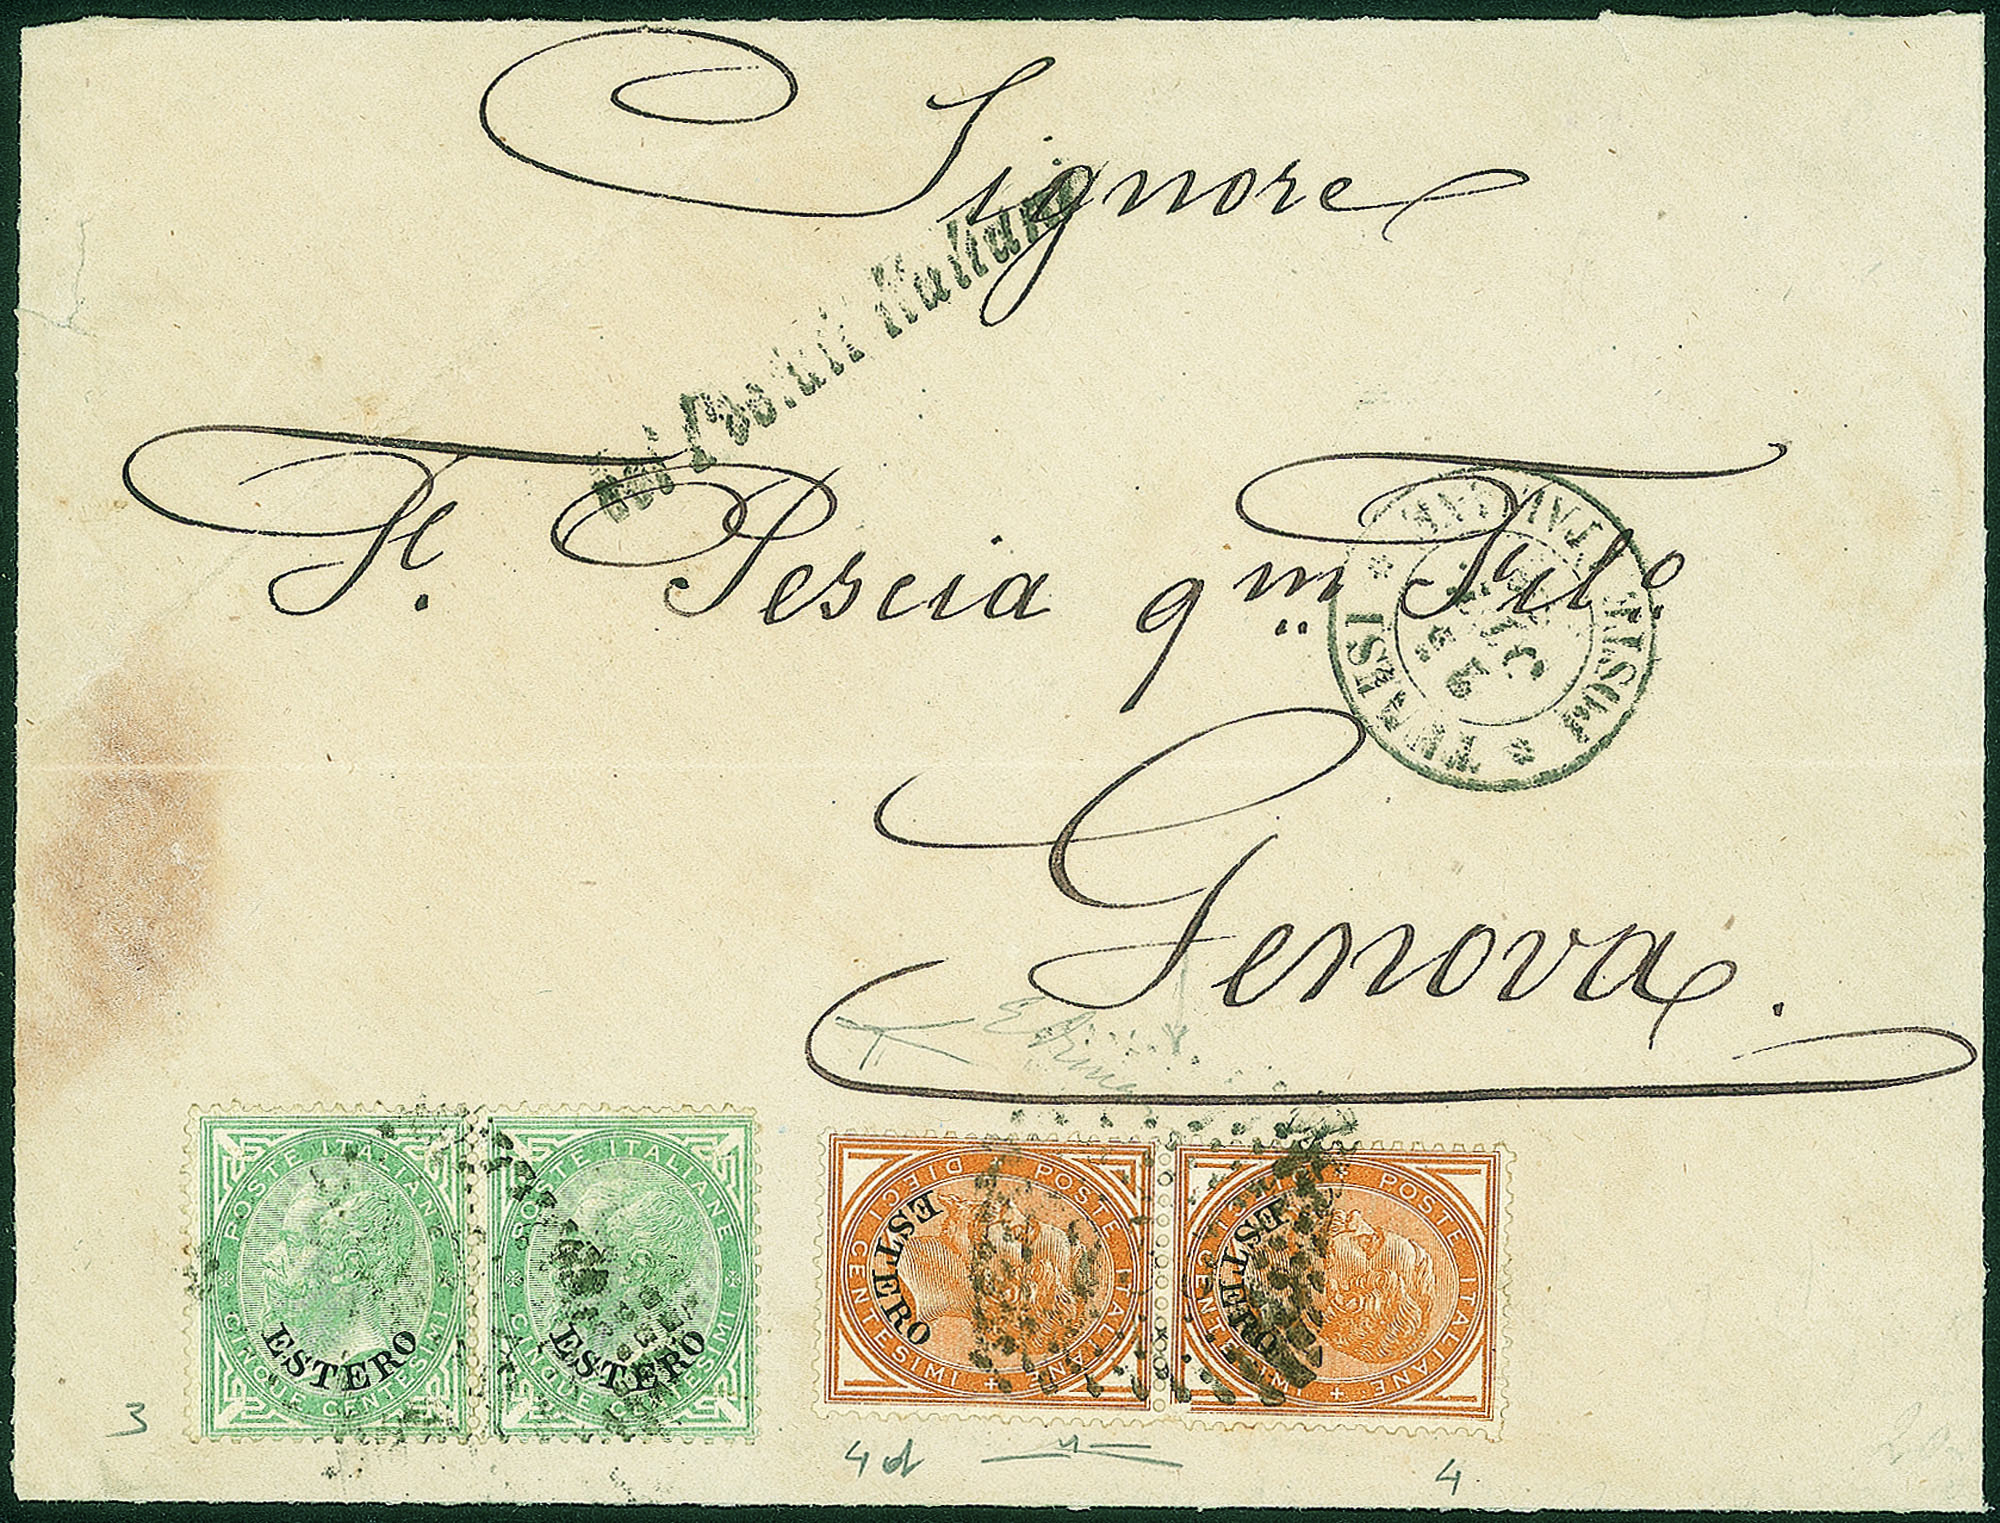 Signore
coi Postali Italiani
F. Pescia qm Fil.o
TUNISI * POSTE ITALIANE *
Genova.
POSTE ITALIANE
CINQUE CENTESIMI
ESTERO
POSTE ITALIANE
CINQUE CENTESIMI
ESTERO
POSTE ITALIANE
DIECI CENTESIMI
ESTERO
POSTE ITALIANE
DIECI CENTESIMI
ESTERO
3
4d
4